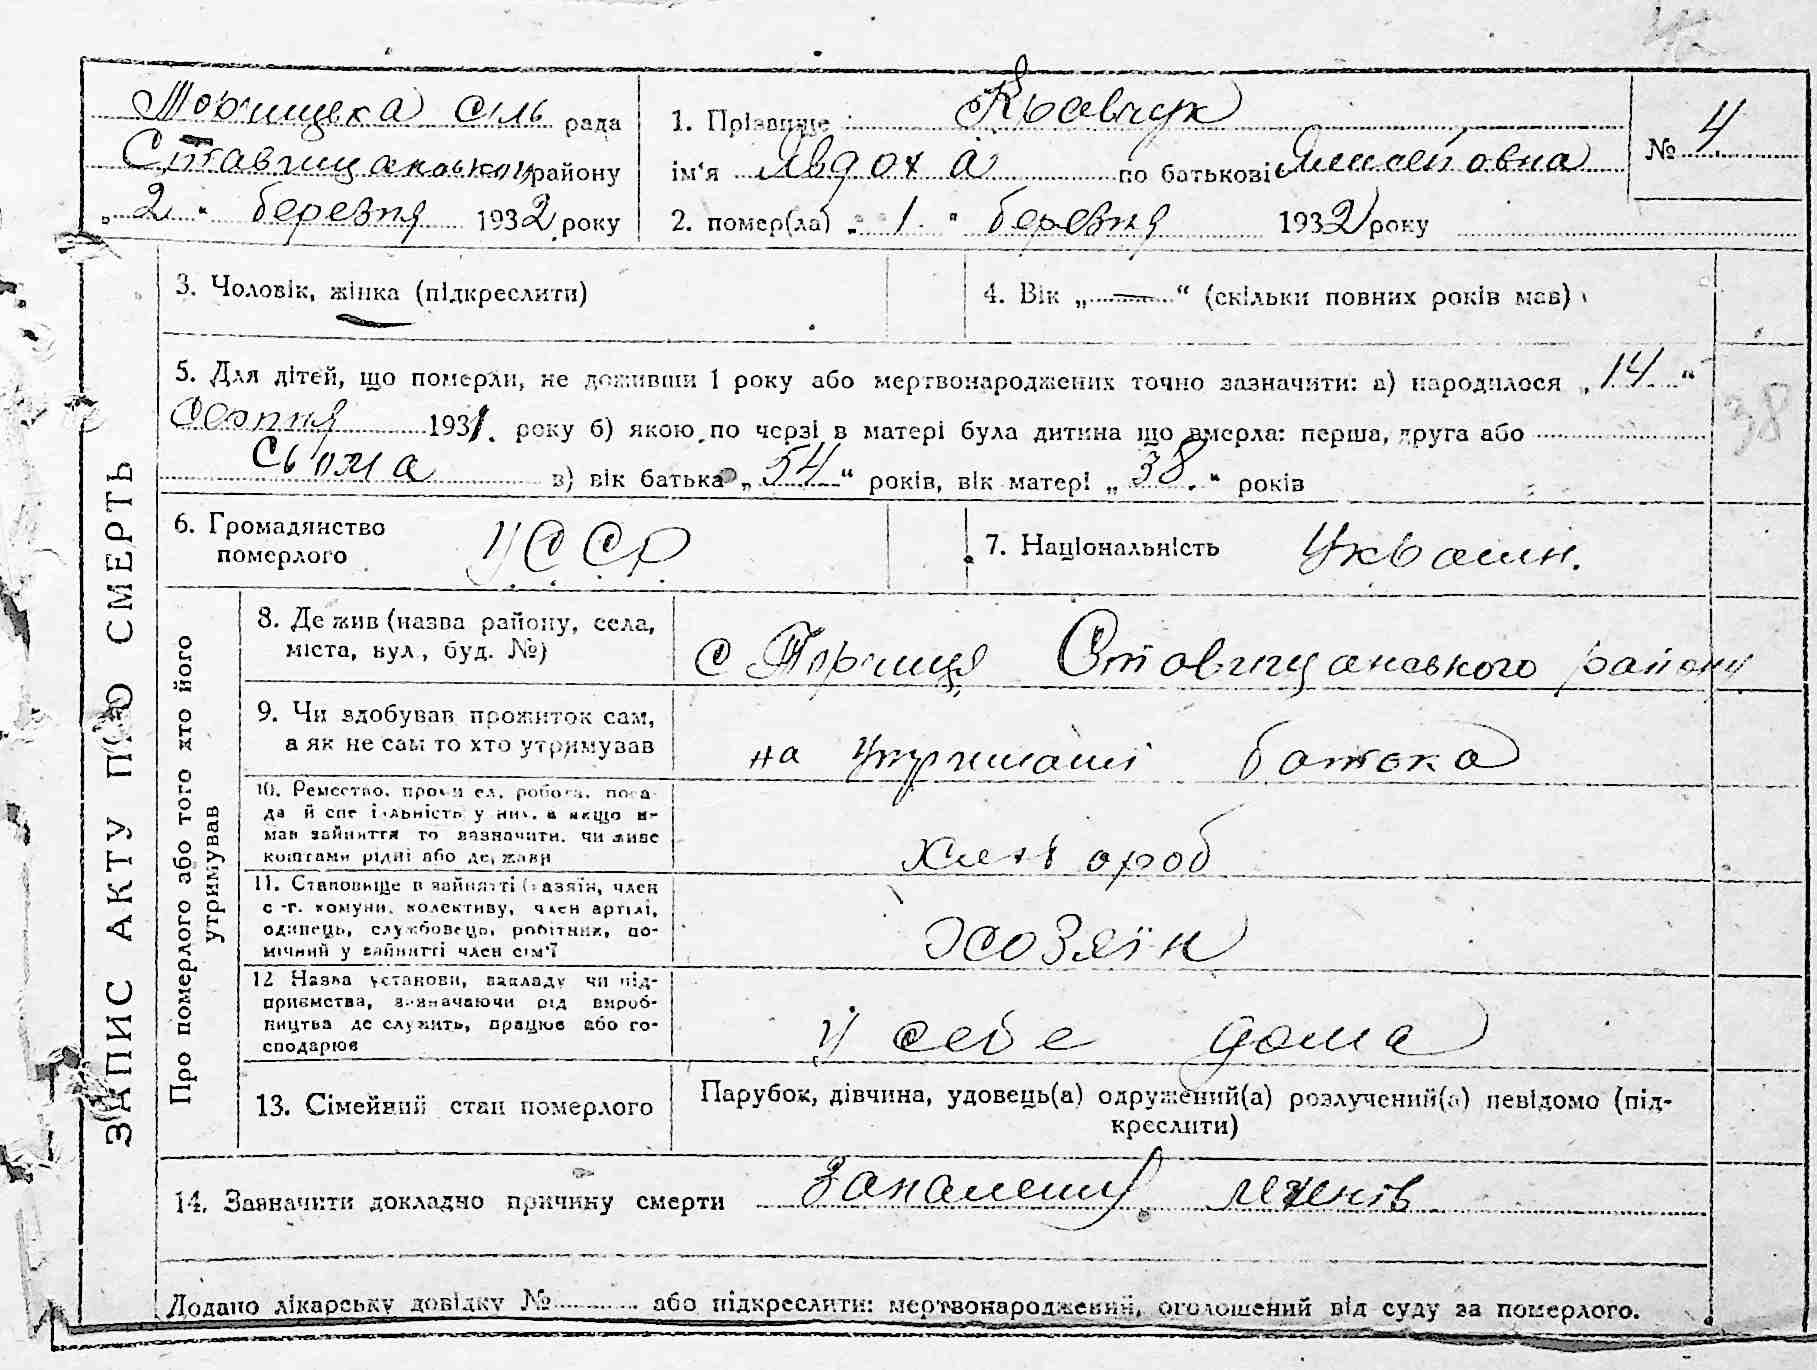 Торчицька сіль рада
Ставищанськой району
„ 2 " березня 1932 року
1. Прізвище Кравчук
ім'я Явдоха по батькові
2. помер(ла) „ 1 " березня 1932 року
№ 4
ЗАПИС АКТУ ПРО СМЕРТЬ
3. Чоловік, жінка (підкреслити)
4. Вік „ — “ (скільки повних років мав)
5. Для дітей, що померли, не доживши 1 року або мертвонароджених точно зазначити: а) народилося „ 14 “
серпня 1931. року б) якою по черзі в матері була дитина що вмерла: перша, друга або
сьома в) вік батька „ 54 “ років, вік матері „ 38 “ років
38
6. Громадянство
померлого УССР
7. Національність Украин.
Про померлого або того хто його
утримував
8. Де жив (назва району, села,
міста, вул., буд. №)
с Торчиця Ставищанського району
9. Чи здобував прожиток сам,
а як не сам то хто утримував
на утриманні батька
10. Ремество, промисел, робота, поса-
да й спеціальність у них, а якщо н-
мав зайняття то зазначити, чи живе
коштами рідні або держави
хлібороб
11. Становище в зайнятті (хазяїн, член
с.-г. комуни, колективу, член артілі,
одинець, службовець, робітник, по-
мічний у зайнятті член сім'ї
хозяїн
12 Назва установи, закладу чи під-
приємства, зазначаючи рід вироб-
ництва де служить, працює або го-
сподарює
у себе дома
13. Сімейний стан померлого
Парубок, дівчина, удовець(а) одружений(а) розлучений(а) невідомо (під-
креслити)
14. Зазначити докладно причину смерти Запалення легенів
Додано лікарську довідку № або підкреслити: мертвонароджений, оголошений від суду за померлого.